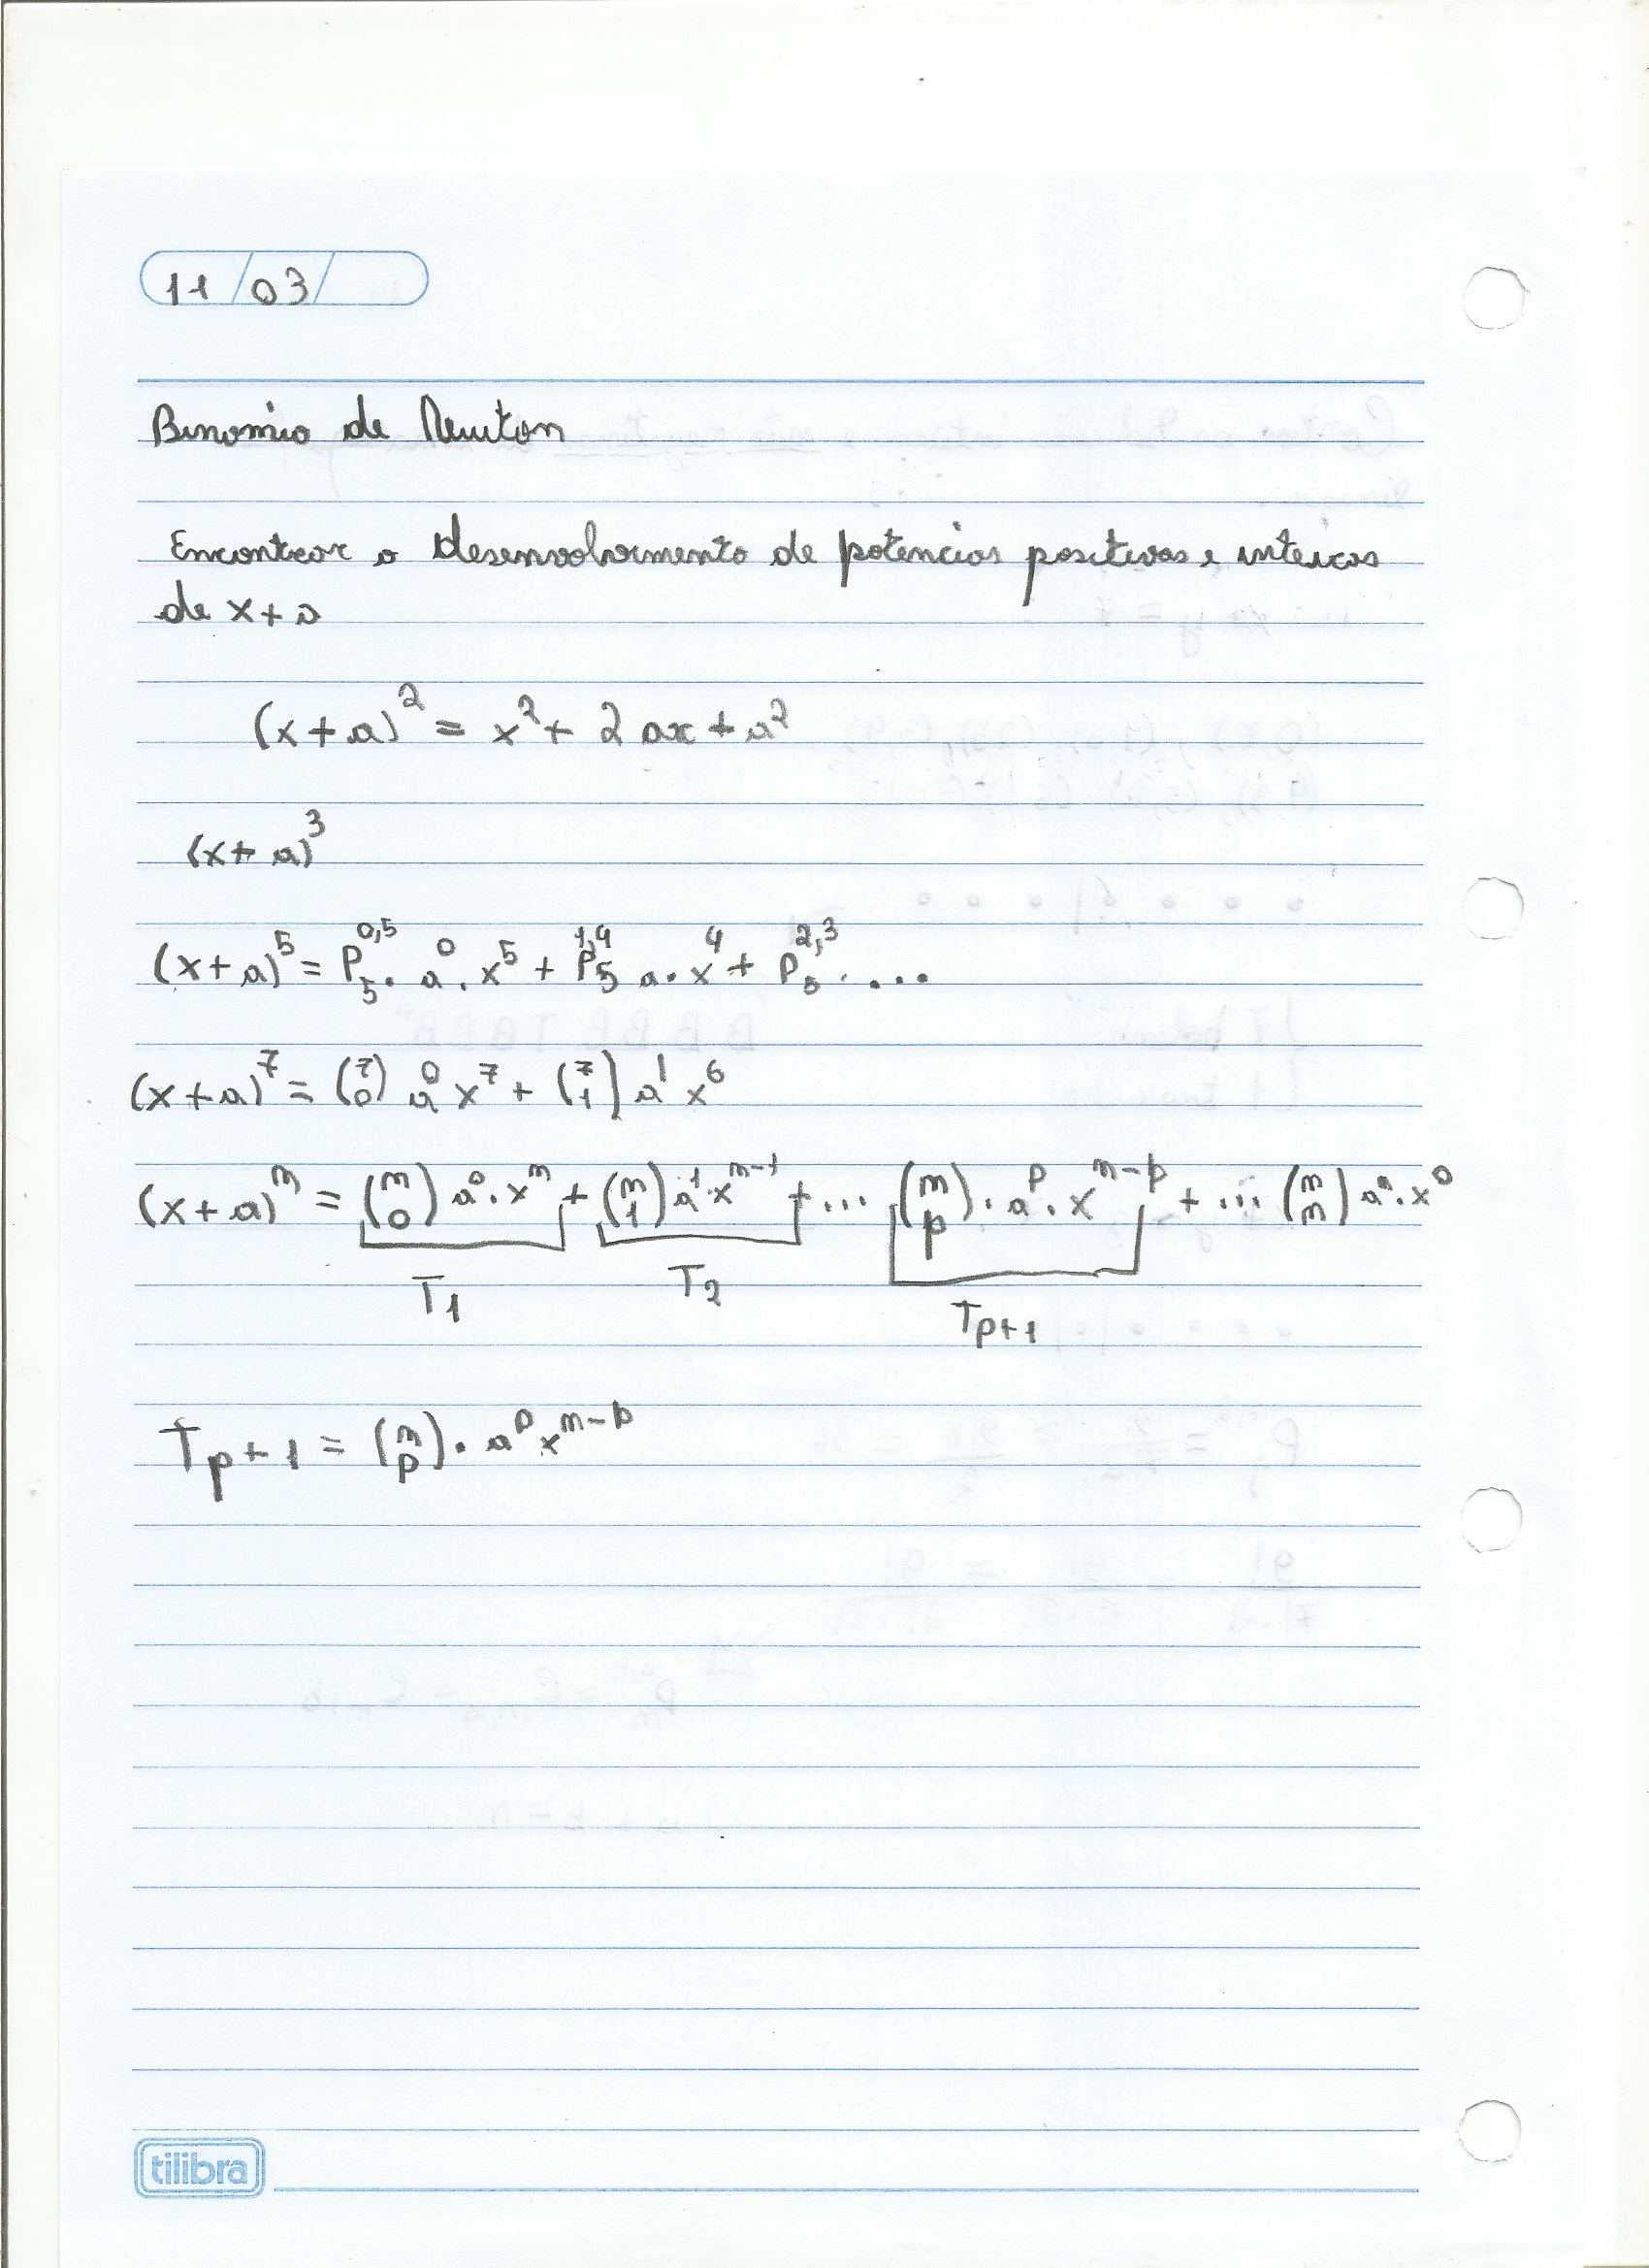 11/03/
Binomio de Newton
Encontrar o desenvolvimento de potencias positivas e inteiras
de x+a
(x+a)² = x² + 2ax + a²
(x+a)³
(x+a)⁵ = P₅^{0,5} . a⁰ . x⁵ + P₅^{1,4} a . x⁴ + P₅^{2,3} . ...
(x+a)⁷ = (7 0) a⁰ x⁷ + (7 1) a¹ x⁶
(x+a)ⁿ = (n 0) a⁰ . x^n + (n 1) a¹ . x^{n-1} + ... (n p) . a^p . x^{n-p} + ... (n n) aⁿ . x⁰
T₁ T₂ T_{p+1}
T_{p+1} = (n p) . a^p x^{n-p}
tilibra